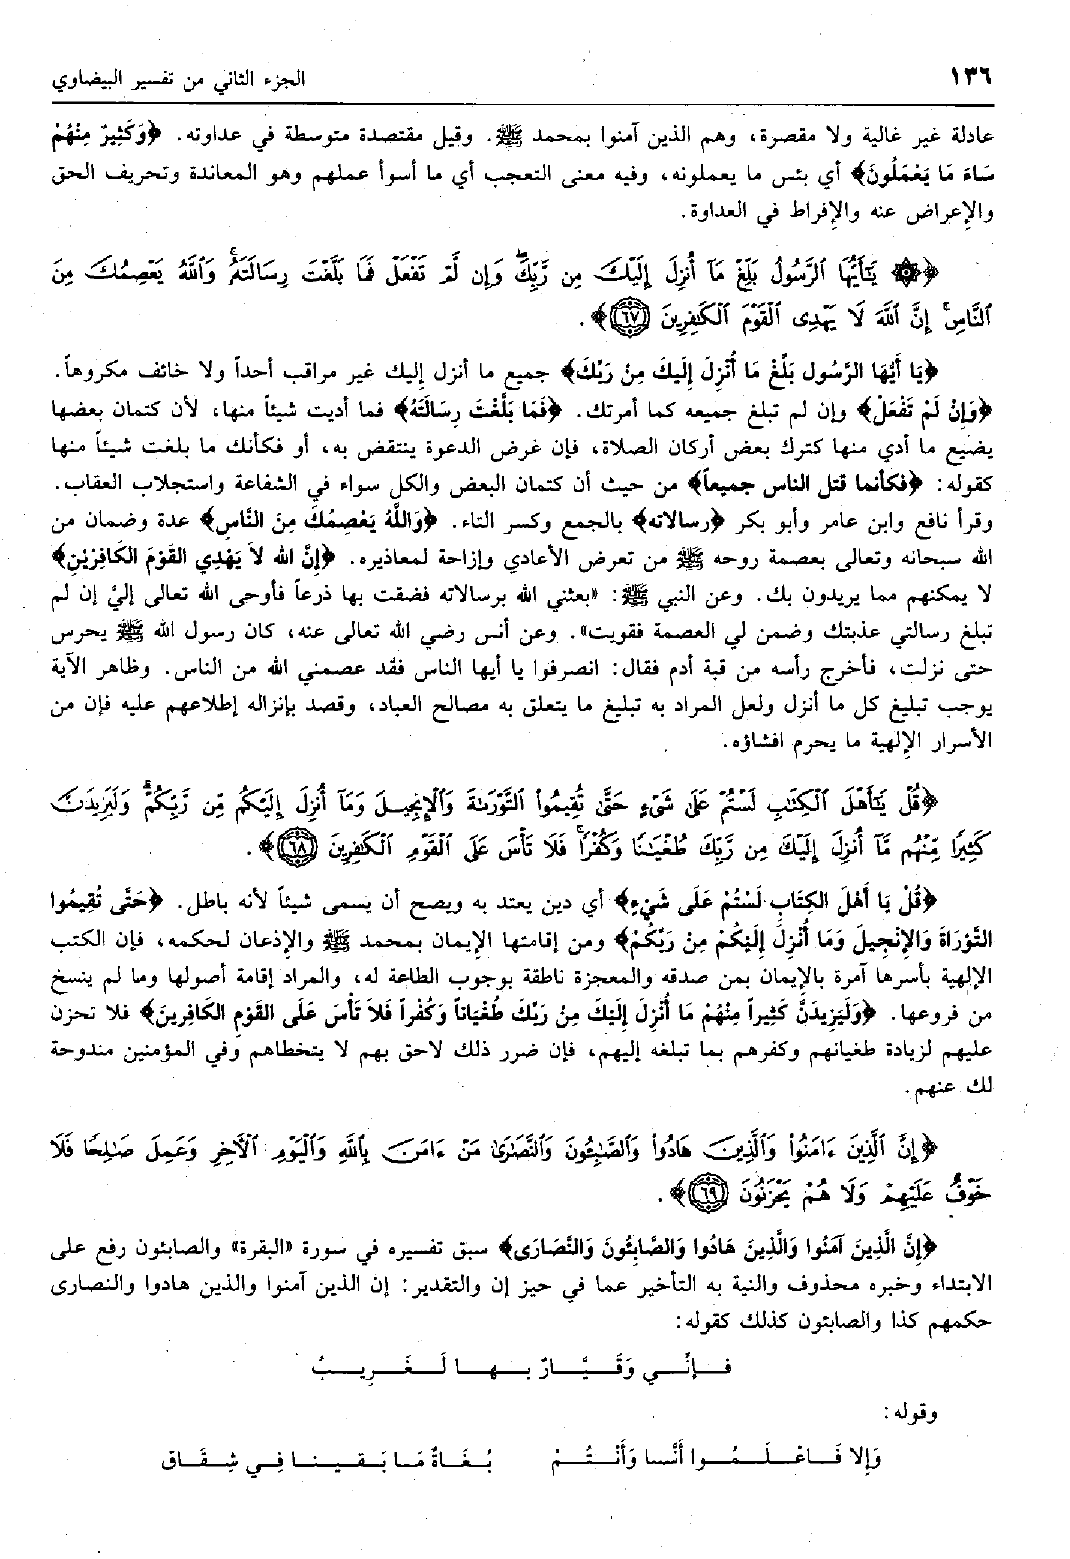 ١٣٦ الجزء الثاني من تفسير البيضاوي
عادلة غير غالية ولا مقصرة، وهم الذين آمنوا بمحمد ﷺ. وقيل مقتصدة متوسطة في عداوته. ﴿وَكَثِيرٌ مِنْهُمْ
سَاءَ مَا يَعْمَلُونَ﴾ أي بئس ما يعملونه، وفيه معنى التعجب أي ما أسوأ عملهم وهو المعاندة وتحريف الحق
والإعراض عنه والإفراط في العداوة.
﴿۞ يَٰٓأَيُّهَا ٱلرَّسُولُ بَلِّغْ مَآ أُنزِلَ إِلَيْكَ مِن رَّبِّكَۖ وَإِن لَّمْ تَفْعَلْ فَمَا بَلَّغْتَ رِسَالَتَهُۥۚ وَٱللَّهُ يَعْصِمُكَ مِنَ
ٱلنَّاسِۗ إِنَّ ٱللَّهَ لَا يَهْدِى ٱلْقَوْمَ ٱلْكَٰفِرِينَ ٦٧﴾.
﴿يَا أَيُّهَا الرَّسُول بَلِّغْ مَا أُنْزِلَ إِلَيْكَ مِنْ رَبِّكَ﴾ جميع ما أنزل إليك غير مراقب أحداً ولا خائف مكروهاً.
﴿وَإِنْ لَمْ تَفْعَلْ﴾ وإن لم تبلغ جميعه كما أمرتك. ﴿فَمَا بَلَّغْتَ رِسَالَتَهُ﴾ فما أديت شيئاً منها، لأن كتمان بعضها
يضيع ما أدي منها كترك بعض أركان الصلاة، فإن غرض الدعوة ينتقض به، أو فكأنك ما بلغت شيئاً منها
كقوله: ﴿فكأنما قتل الناس جميعاً﴾ من حيث أن كتمان البعض والكل سواء في الشفاعة واستجلاب العقاب.
وقرأ نافع وابن عامر وأبو بكر ﴿رسالاته﴾ بالجمع وكسر التاء. ﴿وَاللَّهُ يَعْصِمُكَ مِنَ النَّاسِ﴾ عدة وضمان من
الله سبحانه وتعالى بعصمة روحه ﷺ من تعرض الأعادي وإزاحة لمعاذيره. ﴿إِنَّ الله لاَ يَهْدِي القَوْمَ الكَافِرِيْنَ﴾
لا يمكنهم مما يريدون بك. وعن النبي ﷺ: «بعثني الله برسالاته فضقت بها ذرعاً فأوحى الله تعالى إليَّ إن لم
تبلغ رسالتي عذبتك وضمن لي العصمة فقويت». وعن أنس رضي الله تعالى عنه، كان رسول الله ﷺ يحرس
حتى نزلت، فأخرج رأسه من قبة أدم فقال: انصرفوا يا أيها الناس فقد عصمني الله من الناس. وظاهر الآية
يوجب تبليغ كل ما أنزل ولعل المراد به تبليغ ما يتعلق به مصالح العباد، وقصد بإنزاله إطلاعهم عليه فإن من
الأسرار الإلهية ما يحرم افشاؤه.
﴿قُلْ يَٰٓأَهْلَ ٱلْكِتَٰبِ لَسْتُمْ عَلَىٰ شَىْءٍ حَتَّىٰ تُقِيمُوا۟ ٱلتَّوْرَىٰةَ وَٱلْإِنجِيلَ وَمَآ أُنزِلَ إِلَيْكُم مِّن رَّبِّكُمْۗ وَلَيَزِيدَنَّ
كَثِيرًا مِّنْهُم مَّآ أُنزِلَ إِلَيْكَ مِن رَّبِّكَ طُغْيَٰنًا وَكُفْرًاۖ فَلَا تَأْسَ عَلَى ٱلْقَوْمِ ٱلْكَٰفِرِينَ ٦٨﴾.
﴿قُلْ يَا أَهْلَ الكِتَابِ لَسْتُمْ عَلَى شَيْءٍ﴾ أي دين يعتد به ويصح أن يسمى شيئاً لأنه باطل. ﴿حَتَّى تُقِيمُوا
التَّوْرَاةَ وَالإِنْجِيلَ وَمَا أُنْزِلَ إِلَيْكُمْ مِنْ رَبِّكُمْ﴾ ومن إقامتها الإيمان بمحمد ﷺ والإذعان لحكمه، فإن الكتب
الإلهية بأسرها آمرة بالإيمان بمن صدقه والمعجزة ناطقة بوجوب الطاعة له، والمراد إقامة أصولها وما لم ينسخ
من فروعها. ﴿وَلَيَزِيدَنَّ كَثِيراً مِنْهُمْ مَا أُنْزِلَ إِلَيْكَ مِنْ رَبِّكَ طُغْيَاناً وَكُفْراً فَلاَ تَأْسَ عَلَى القَوْمِ الكَافِرِينَ﴾ فلا تحزن
عليهم لزيادة طغيانهم وكفرهم بما تبلغه إليهم، فإن ضرر ذلك لاحق بهم لا يتخطاهم وفي المؤمنين مندوحة
لك عنهم.
﴿إِنَّ ٱلَّذِينَ ءَامَنُوا۟ وَٱلَّذِينَ هَادُوا۟ وَٱلصَّٰبِـُٔونَ وَٱلنَّصَٰرَىٰ مَنْ ءَامَنَ بِٱللَّهِ وَٱلْيَوْمِ ٱلْـَٔاخِرِ وَعَمِلَ صَٰلِحًا فَلَا
خَوْفٌ عَلَيْهِمْ وَلَا هُمْ يَحْزَنُونَ ٦٩﴾.
﴿إِنَّ الَّذِينَ آمَنُوا وَالَّذِينَ هَادُوا وَالصَّابِئُونَ وَالنَّصَارَى﴾ سبق تفسيره في سورة «البقرة» والصابئون رفع على
الابتداء وخبره محذوف والنية به التأخير عما في حيز إن والتقدير: إن الذين آمنوا والذين هادوا والنصارى
حكمهم كذا والصابئون كذلك كقوله:
فَإِنِّي وَقَيَّارٌ بِهَا لَغَرِيبُ
وقوله:
وَإِلا فَاعْلَمُوا أَنَّا وَأَنْتُمْ بُغَاةٌ مَا بَقِينَا فِي شِقَاقِ